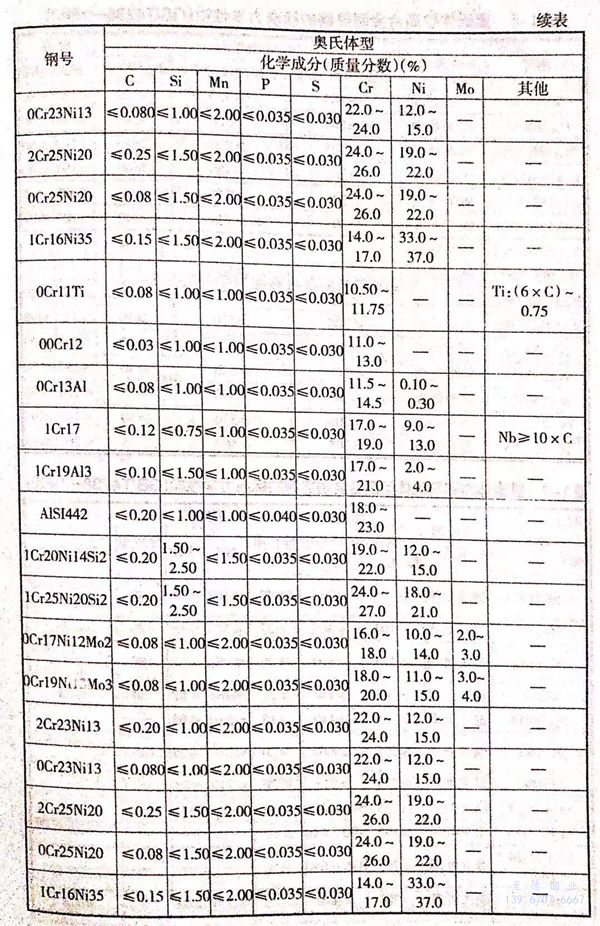 续表
钢号 奥氏体型
化学成分(质量分数)(%)
C Si Mn P S Cr Ni Mo 其他
0Cr23Ni13 ≤0.080 ≤1.00 ≤2.00 ≤0.035 ≤0.030 22.0~24.0 12.0~15.0 — —
2Cr25Ni20 ≤0.25 ≤1.50 ≤2.00 ≤0.035 ≤0.030 24.0~26.0 19.0~22.0 — —
0Cr25Ni20 ≤0.08 ≤1.50 ≤2.00 ≤0.035 ≤0.030 24.0~26.0 19.0~22.0 — —
1Cr16Ni35 ≤0.15 ≤1.50 ≤2.00 ≤0.035 ≤0.030 14.0~17.0 33.0~37.0 — —
0Cr11Ti ≤0.08 ≤1.00 ≤1.00 ≤0.035 ≤0.030 10.50~11.75 — — Ti:(6×C)~0.75
00Cr12 ≤0.03 ≤1.00 ≤1.00 ≤0.035 ≤0.030 11.0~13.0 — — —
0Cr13Al ≤0.08 ≤1.00 ≤1.00 ≤0.035 ≤0.030 11.5~14.5 0.10~0.30 — —
1Cr17 ≤0.12 ≤0.75 ≤1.00 ≤0.035 ≤0.030 17.0~19.0 9.0~13.0 — Nb≥10×C
1Cr19Al3 ≤0.10 ≤1.50 ≤1.00 ≤0.035 ≤0.030 17.0~21.0 2.0~4.0 — —
AlSI442 ≤0.20 ≤1.00 ≤1.00 ≤0.040 ≤0.030 18.0~23.0 — — —
1Cr20Ni14Si2 ≤0.20 1.50~2.50 ≤1.50 ≤0.035 ≤0.030 19.0~22.0 12.0~15.0 — —
1Cr25Ni20Si2 ≤0.20 1.50~2.50 ≤1.50 ≤0.035 ≤0.030 24.0~27.0 18.0~21.0 — —
0Cr17Ni12Mo2 ≤0.08 ≤1.00 ≤2.00 ≤0.035 ≤0.030 16.0~18.0 10.0~14.0 2.0~3.0 —
0Cr19Ni13Mo3 ≤0.08 ≤1.00 ≤2.00 ≤0.035 ≤0.030 18.0~20.0 11.0~15.0 3.0~4.0 —
2Cr23Ni13 ≤0.20 ≤1.00 ≤2.00 ≤0.035 ≤0.030 22.0~24.0 12.0~15.0 — —
0Cr23Ni13 ≤0.080 ≤1.00 ≤2.00 ≤0.035 ≤0.030 22.0~24.0 12.0~15.0 — —
2Cr25Ni20 ≤0.25 ≤1.50 ≤2.00 ≤0.035 ≤0.030 24.0~26.0 19.0~22.0 — —
0Cr25Ni20 ≤0.08 ≤1.50 ≤2.00 ≤0.035 ≤0.030 24.0~26.0 19.0~22.0 — —
1Cr16Ni35 ≤0.15 ≤1.50 ≤2.00 ≤0.035 ≤0.030 14.0~17.0 33.0~37.0 — —